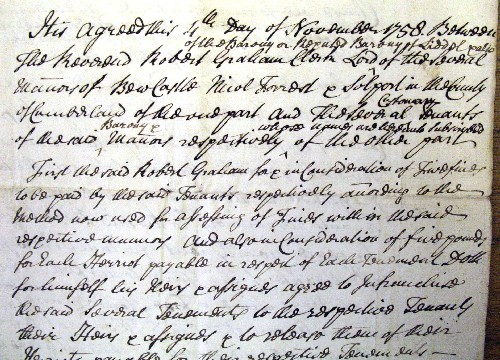 It is Agreed this 4th Day of November 1758 Between
of the Barony or Reputed Barony of Liddel &
The Reverend Robert Graham Clerk Lord of the several
Manors of Bewcastle Nicol Forrest & Solport in the County
Customary
of Cumberland of the one part And The several Tenants
Barony & whose names are hereunto Subscribed
of the said Manors respectively of the other part
First the said Robert Graham for & in Consideration of fines
to be paid by the said Tenants respectively according to the
method now used for assessing of Fines within the said
respective manors And also in Consideration of five pounds
for Each Herriot payable in respect of Each Tenement Doth
for himself his Heirs & assigns agree to Infranchise
the said Several Tenements to the respective Tenants
their Heirs & assigns & to release them of their
payable for their respective Tenements